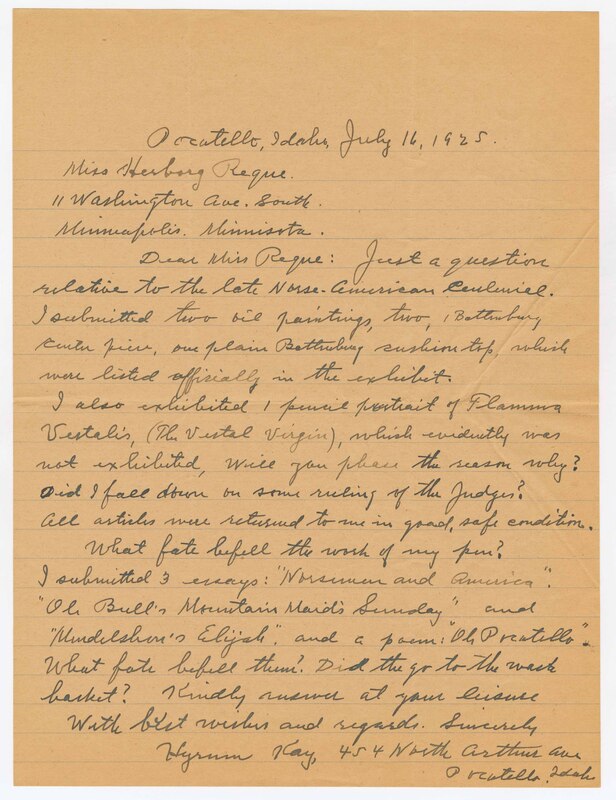 Pocatello, Idaho, July 16, 1925.
Miss Herborg Reque.
11 Washington Ave. South.
Minneapolis. Minnisota.
Dear Miss Reque: Just a question
relative to the late Norse-American Cenluniel.
I submitted two oil paintings, two, 1 Battenburg
center piece, one plain Battenburg cushion top, which
were listed officially in the exhibit.
I also exhibited 1 pencil portrait of Flamma
Vestalis, (The Vestal Virgin), which evidently was
not exhibited, Will you please the reason why?
Did I fall down on some ruling of the Judges?
All articles were returned to me in good, safe condition.
What fate befell the work of my pen?
I submitted 3 essays: "Norsemen and America".
"Ole Bull's Mountain Maid's Sunday" and
"Mendelshon's Elijah". and a poem: "Oh Pocatello".
What fate befell them? Did the go to the waste
basket? Kindly answer at your leisure
With best wishes and regards. Sincerely
Hyrum Kay, 454 North Arthur Ave
Pocatello, Idaho